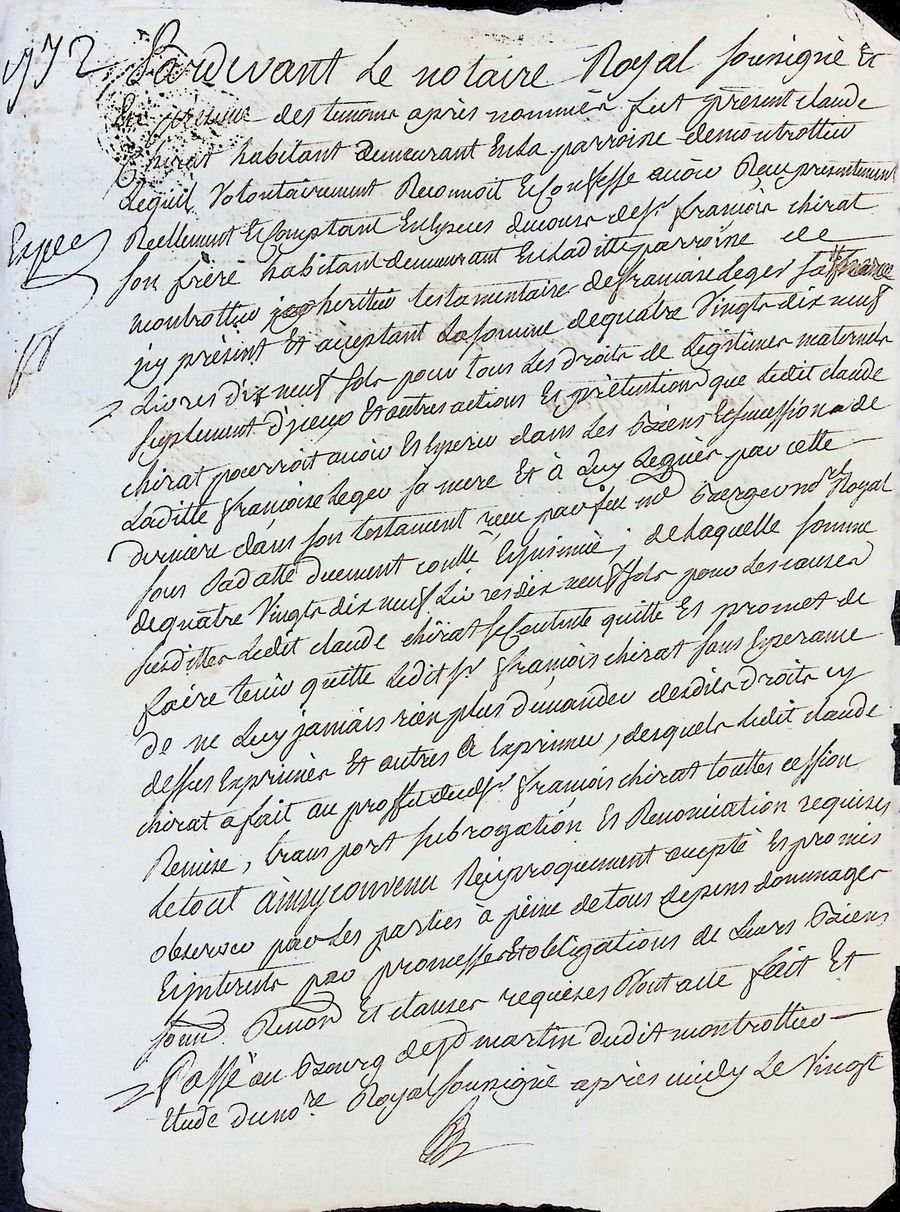 1772 Pardevant Le notaire Royal soussigné Et
En présence des temoins après nommés fut présent claude
chirat habitant demeurant En La parroisse de montrottier
Lequel Volontairement Reconnoit Et Confesse avoir Reçu présentement
Réellement Et Comptant En Especes de cours de sr françois chirat
Expée
son frère habitant demeurant En Laditte parroisse de
montrottier heritier testamentaire de françoise Leger sa
icy présent Et acceptant La somme de quatre Vingts dix neuf
Livres dix neuf sols pour tous Les droits de Légitimes maternels
suplement d'iceux Et autres actions Et prétentions que ledit claude
chirat pourroit avoir Et Esperer dans Les Biens Et succession de
Laditte françoise Leger sa mere Et à Luy Legués par cette
derniere dans son testament reçu par feu me Berger nore Royal
sous sa datte duement controllé Et insinué ; de Laquelle somme
de quatre Vingts dix neuf Livres dix neuf sols pour Les causes
susdittes Ledit claude chirat se Contente quitte Et promet de
faire tenir quitte Ledit sr françois chirat sans Esperance
de ne Luy jamais rien plus demander desdits droits cy
dessus Exprimés Et autres a Exprimer, desquels ledit claude
chirat a fait au proffit dudit sr françois chirat touttes cession
Remise, transport subrogation Et Renonciation requises
le tout ainsy convenu Réciproquement accepté Et promis
observer par Les parties à peine de tous depens dommages
Et interets par promesses Et obligations de Leurs Biens
soumd Renond Et clauses requises Dont acte fait Et
Passé au bourg de st martin dudit montrottier
Etude du nore Royal soussigné après midy Le Vingt